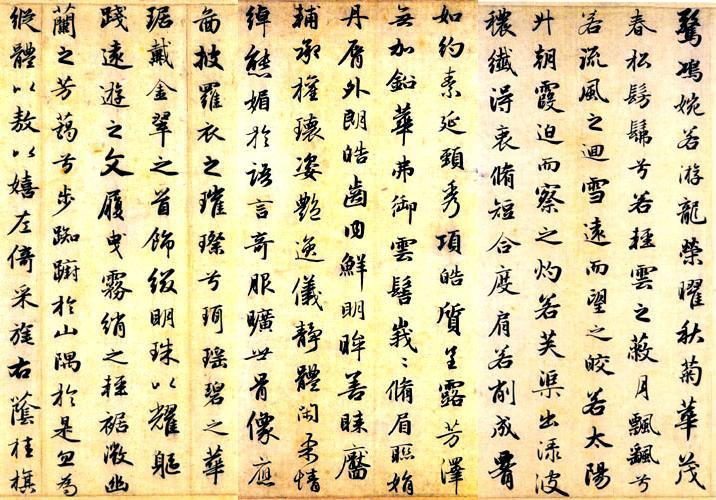 驚鴻婉若游龍榮曜秋菊華茂
春松髣髴兮若輕雲之蔽月飄飄兮
若流風之迴雪遠而望之皎若太陽
升朝霞迫而察之灼若芙渠出淥波
穠纖得衷脩短合度肩若削成腰
如約素延頸秀項皓質呈露芳澤
無加鉛華弗御雲髻峩〻脩眉聯娟
丹脣外朗皓齒内鮮明眸善睞靨
輔承權瓌姿艷逸儀靜體閑柔情
綽態媚於語言奇服曠世骨像應
圖披羅衣之璀璨兮珥瑤碧之華
琚戴金翠之首飾綴明珠以耀軀
踐遠遊之文履曳霧綃之輕裾微幽
蘭之芳藹兮步踟躕於山隅於是忽焉
縱體以敖以嬉左倚采旄右蔭桂旗